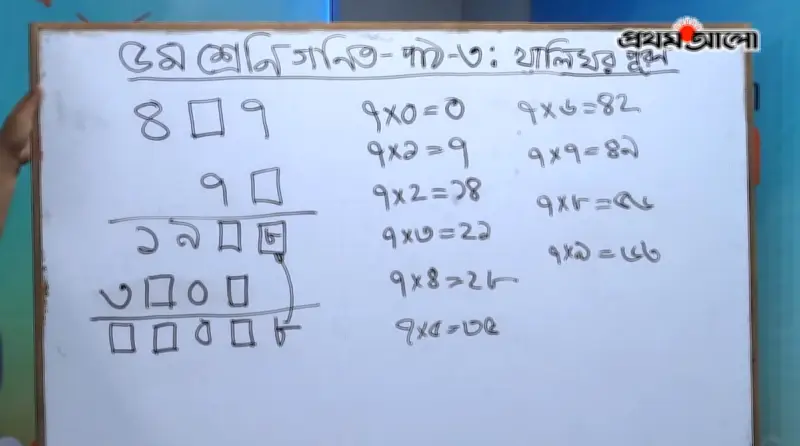 প্রথম আলো
৫ম শ্রেনি গনিত- পাঠ-৩: খালিঘর পূরণ
৪ □ ৭
৭ □
১ ৯ □ ৮
৩ □ ০ □
□ □ ০ □ ৮
৭×০=০
৭×১=৭
৭×২=১৪
৭×৩=২১
৭×৪=২৮
৭×৫=৩৫
৭×৬=৪২
৭×৭=৪৯
৭×৮=৫৬
৭×৯=৬৩